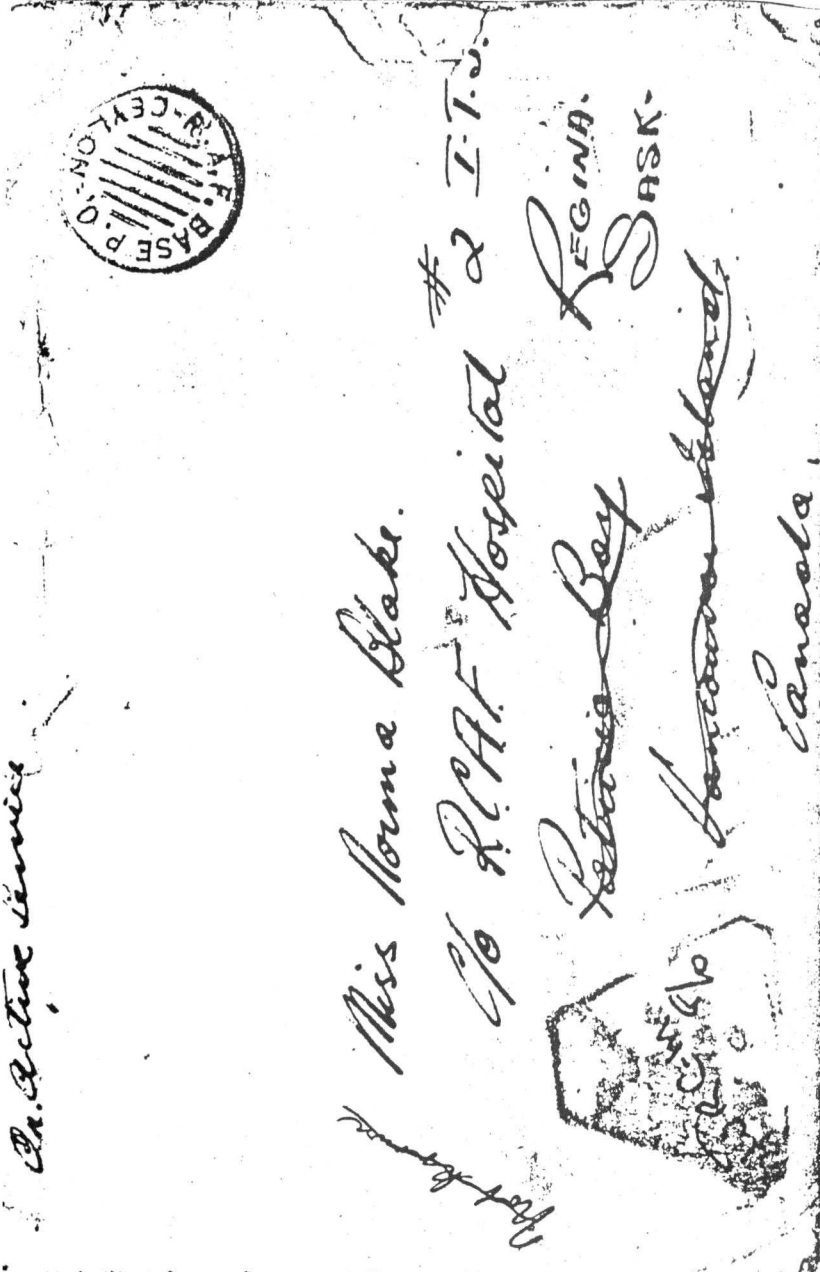 On Active Service
R.A.F. BASE P.O.
-CEYLON-
Miss Norma Blake.
C/o R.C.A.F. Hospital # 2 I.T.S.
Patricia Bay REGINA.
SASK-
Vancouver Island
Canada,